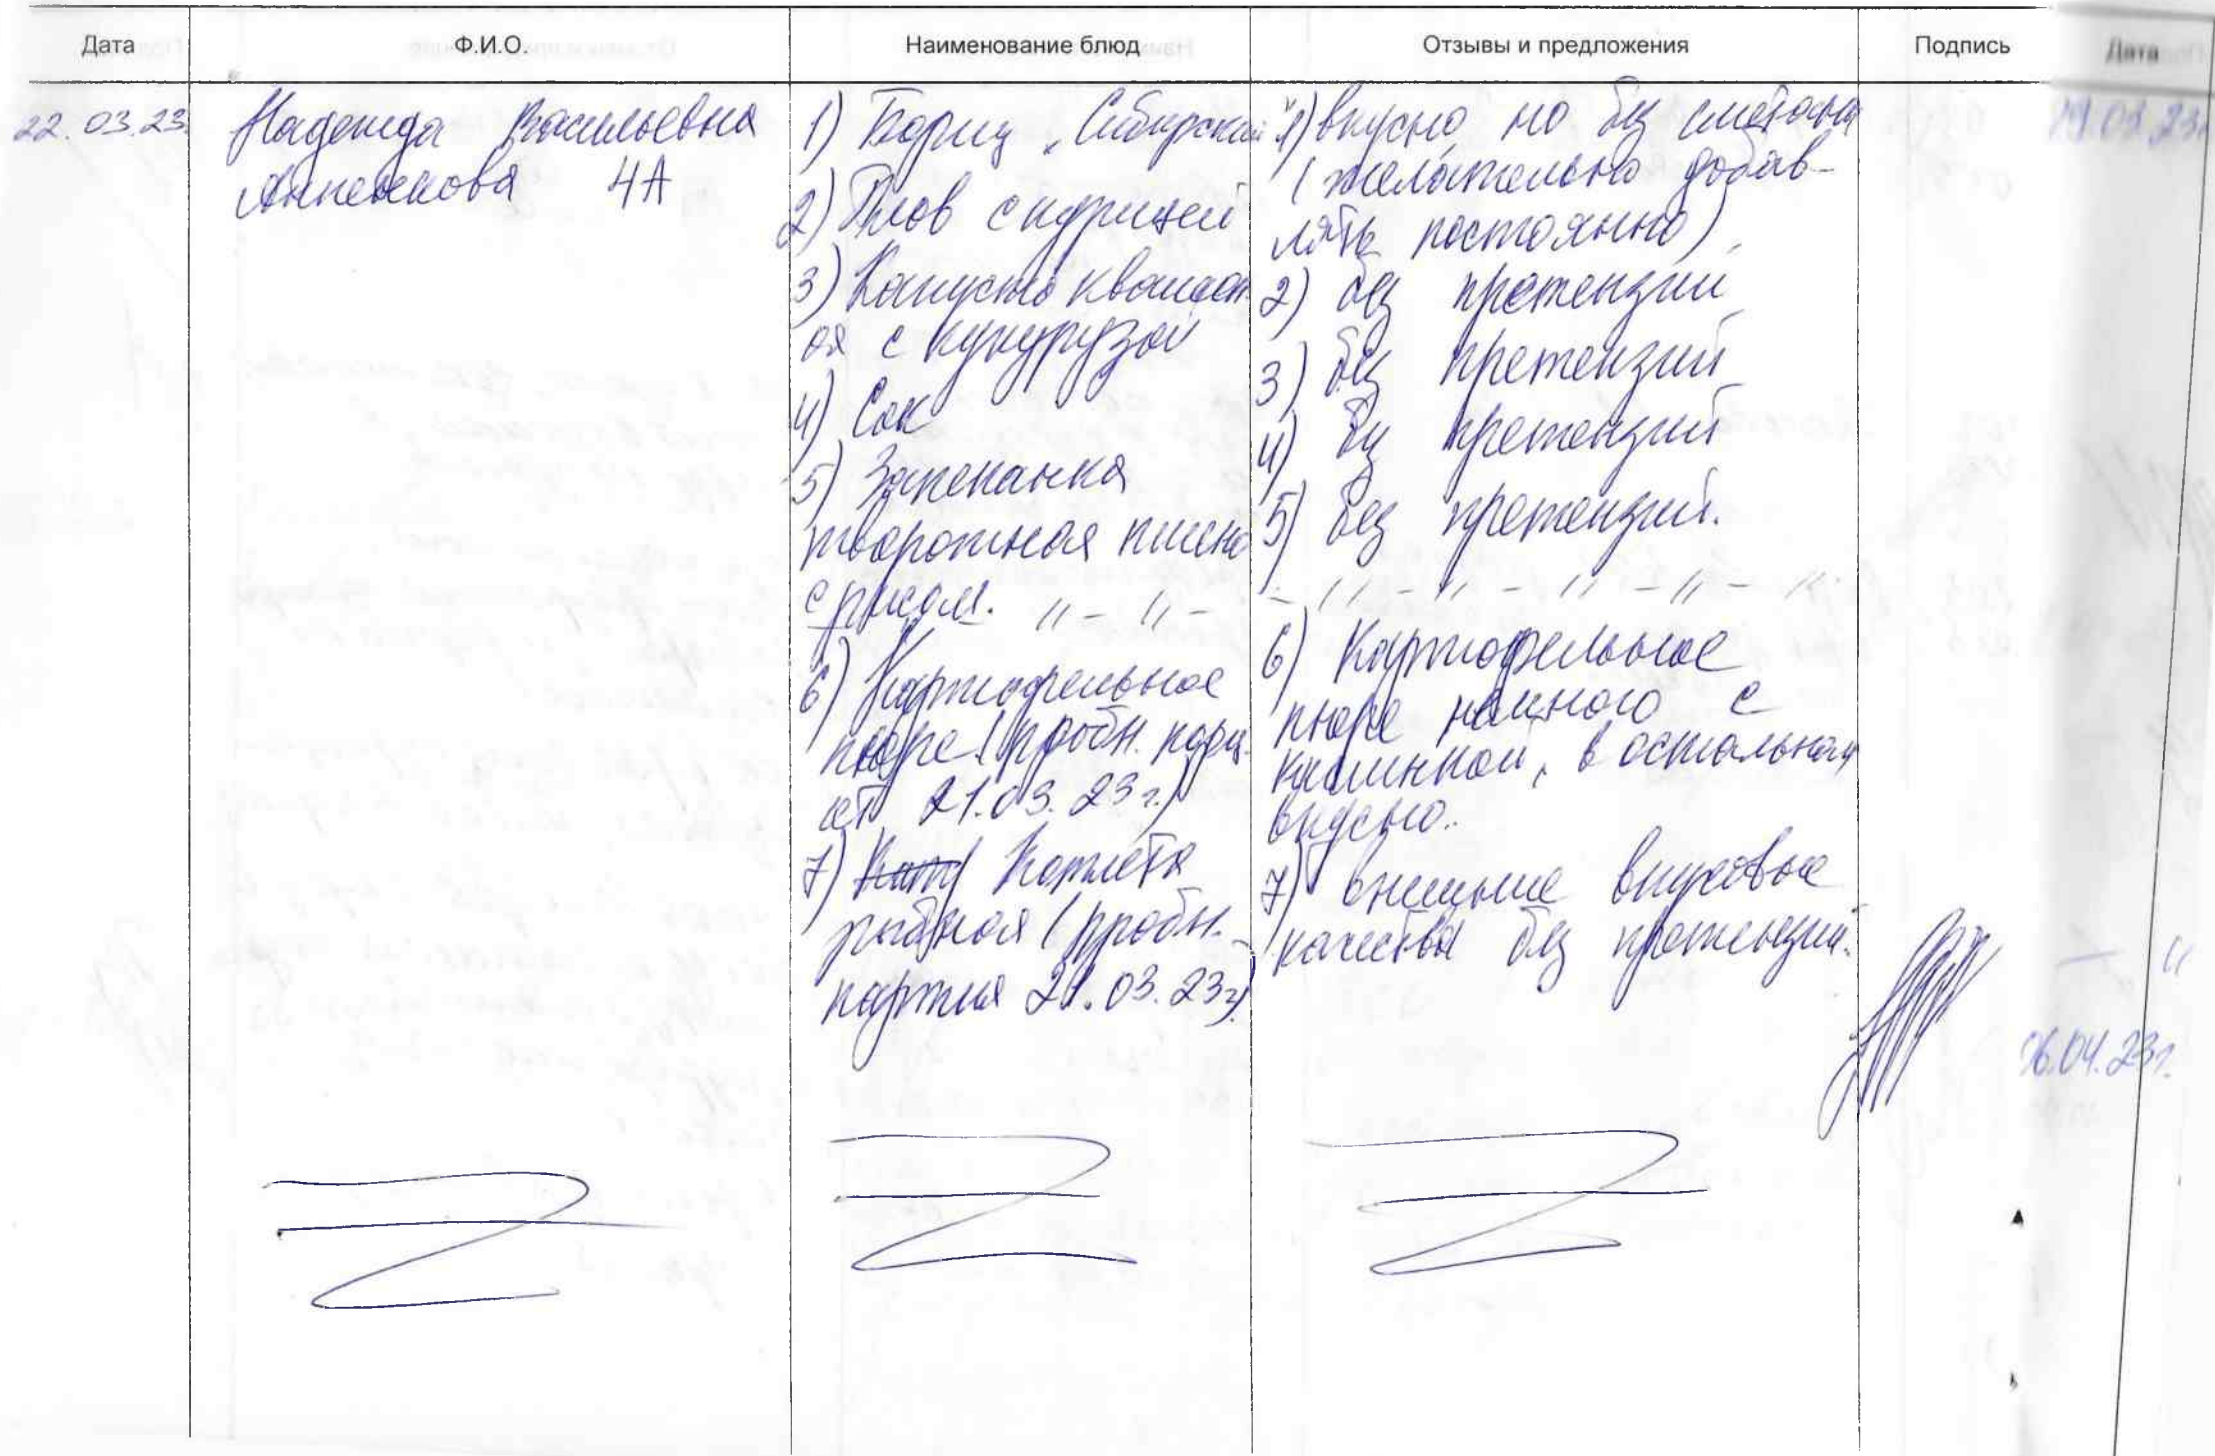 Дата Ф.И.О. Наименование блюд Отзывы и предложения Подпись Дата
22.03.23.
Надежда Васильевна
4А
1) Борщ „Сибирский"
2) Плов с курицей
3) Капуста квашен-
ая с кукурузой
4) Сок
5) Запеканка
творожная пшено
с рисом. " - " -
6) Картофельное
пюре (пробн. порц.
от 21.03.23г.)
7) Котлета
рыбная (пробн.
партия 21.03.23г)
1) вкусно, но без сметаны
(желательно добав-
лять постоянно)
2) без претензий
3) без претензий
4) без претензий
5) без претензий.
- " - " - " - " - "
6) Картофельное
пюре немного с
кислинкой, в остальном
вкусно.
7) внешние вкусовые
качества без претензий.
29.03.23г
06.04.23г.